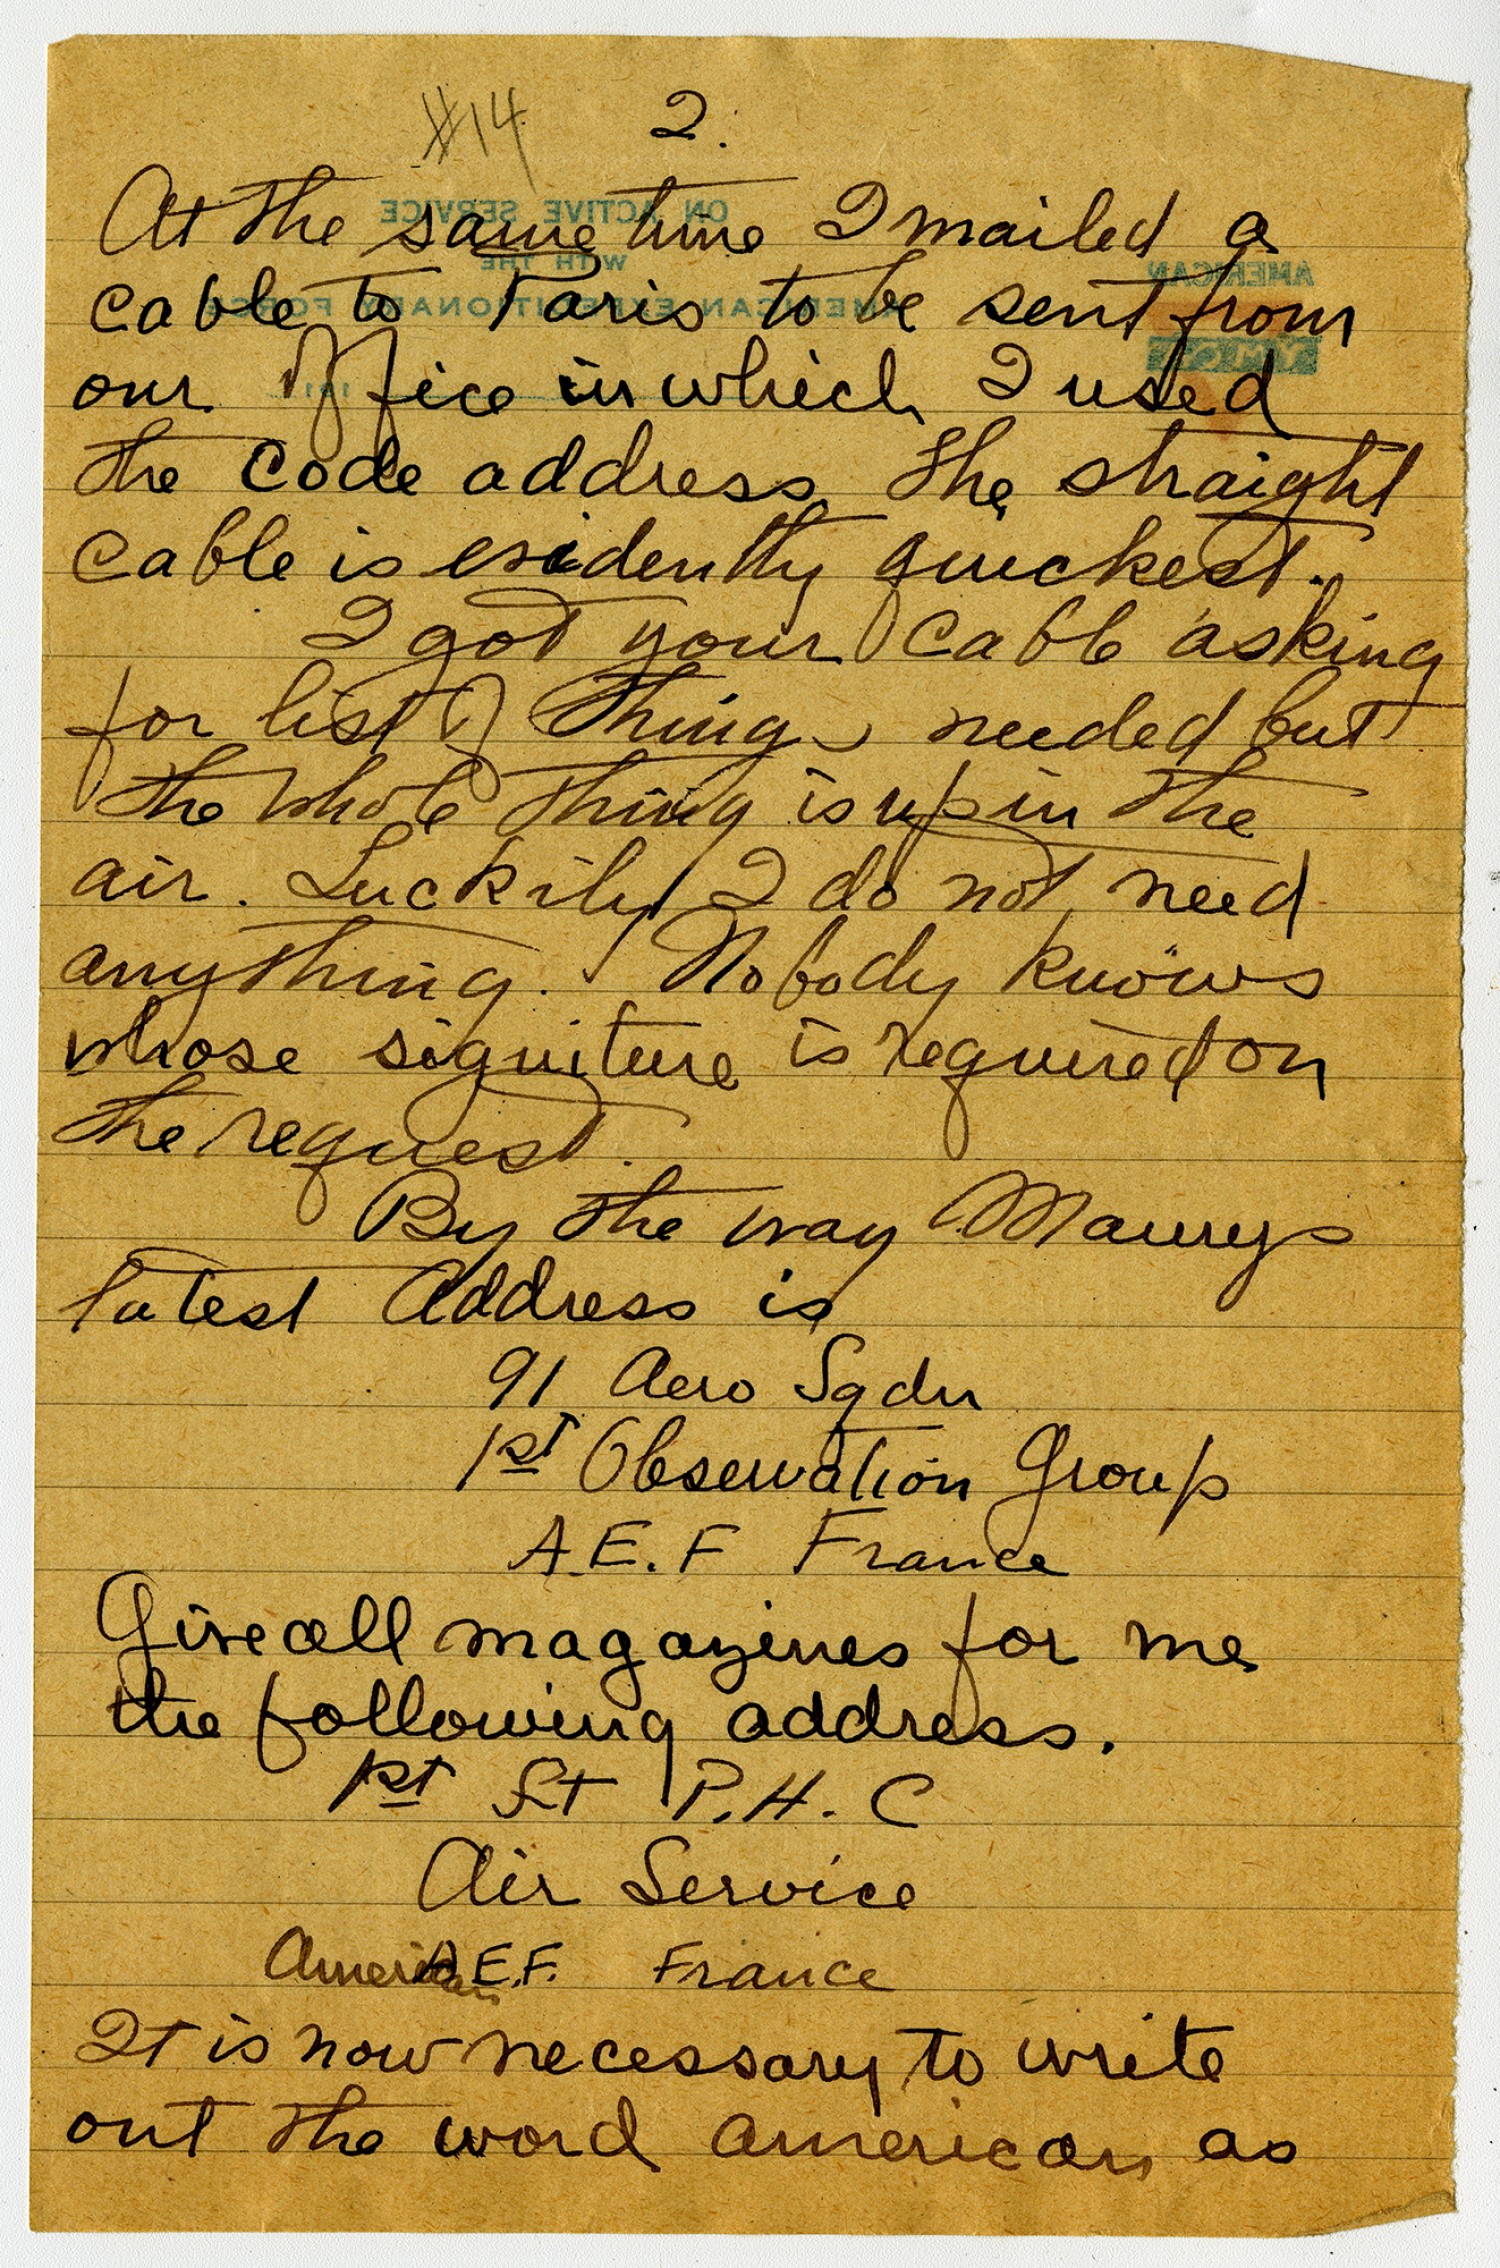 #14 2.
At the same time I mailed a
cable to Paris to be sent from
our office in which I used
the code address, the straight
cable is evidently quickest.
I got your cable asking
for list of things needed but
the whole thing is up in the
air. Luckily I do not need
anything. Nobody knows
whose signiture is required on
the request.
By the way Maurys
latest address is
91 Aero Sqdn
1st Observation Group
A.E.F France
Give all magazines for me
the following address.
1st Lt P.H.C
Air Service
American A.E.F. France
It is now necessary to write
out the word American as
ON ACTIVE SERVICE
WITH THE
AMERICAN EXPEDITIONARY FORCE
AMERICAN
YMCA
191